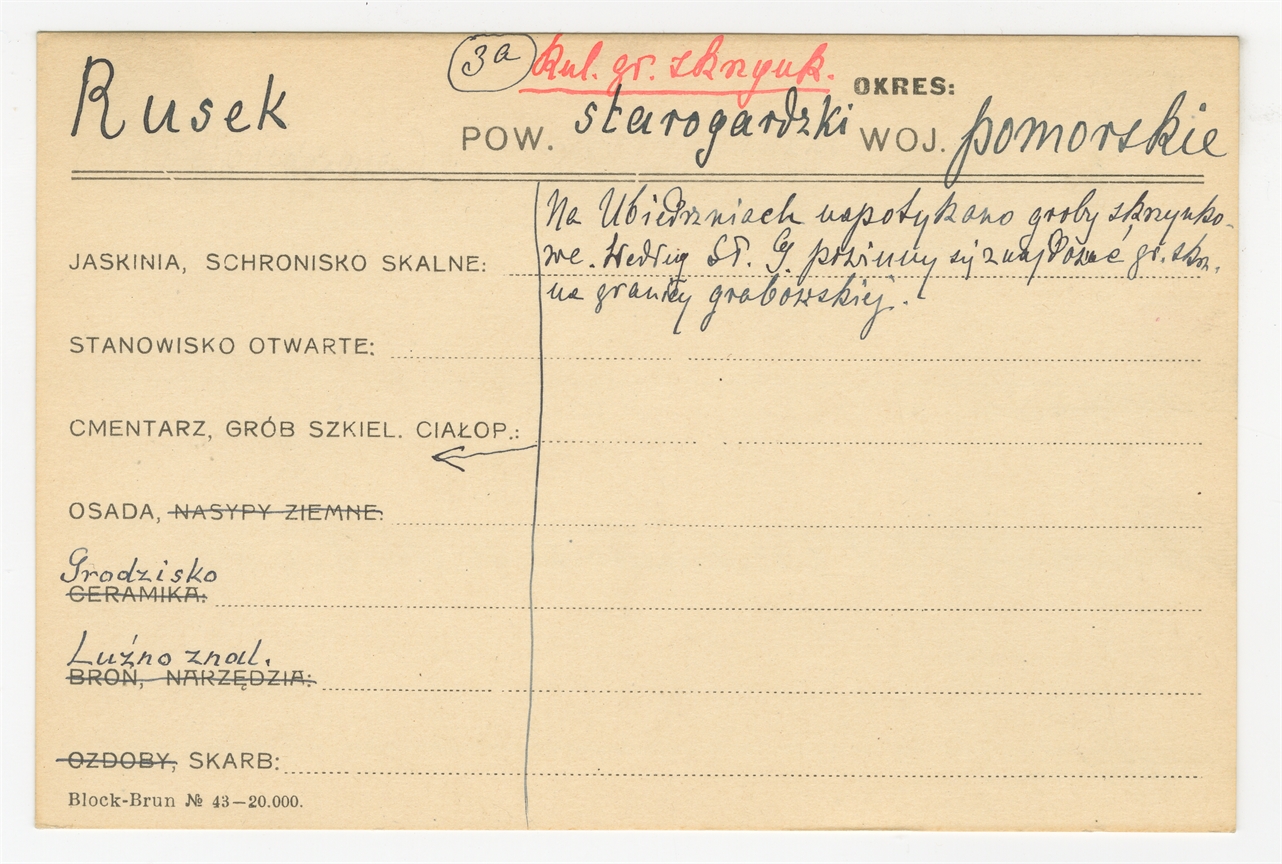 3a kul. gr. skrzynk.
OKRES:
Rusek POW. starogardzki WOJ. pomorskie
Na Ubiedrzniach napotykano groby skrzynko-
we. Według St. G. powinny się znajdować gr. skrz.
na granicy grabowskiej.
JASKINIA, SCHRONISKO SKALNE:
STANOWISKO OTWARTE:
CMENTARZ, GRÓB SZKIEL. CIAŁOP.:
OSADA, NASYPY ZIEMNE:
Grodzisko
CERAMIKA:
Luźno znal.
BROŃ, NARZĘDZIA:
OZDOBY, SKARB:
Block-Brun № 43—20.000.